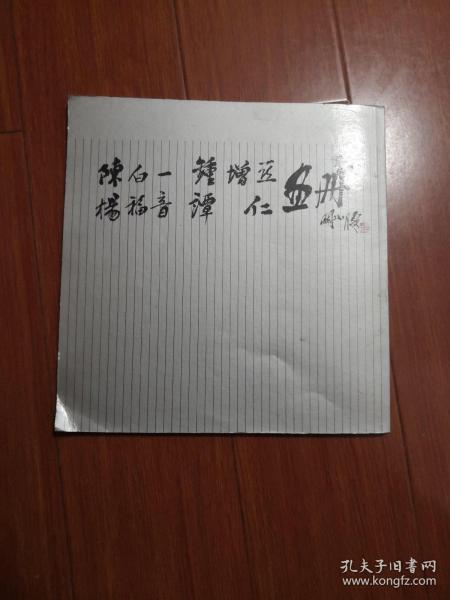 陳白一 鍾增亚 画册
楊福音 譚仁
孔夫子旧书网
www.kongfz.com